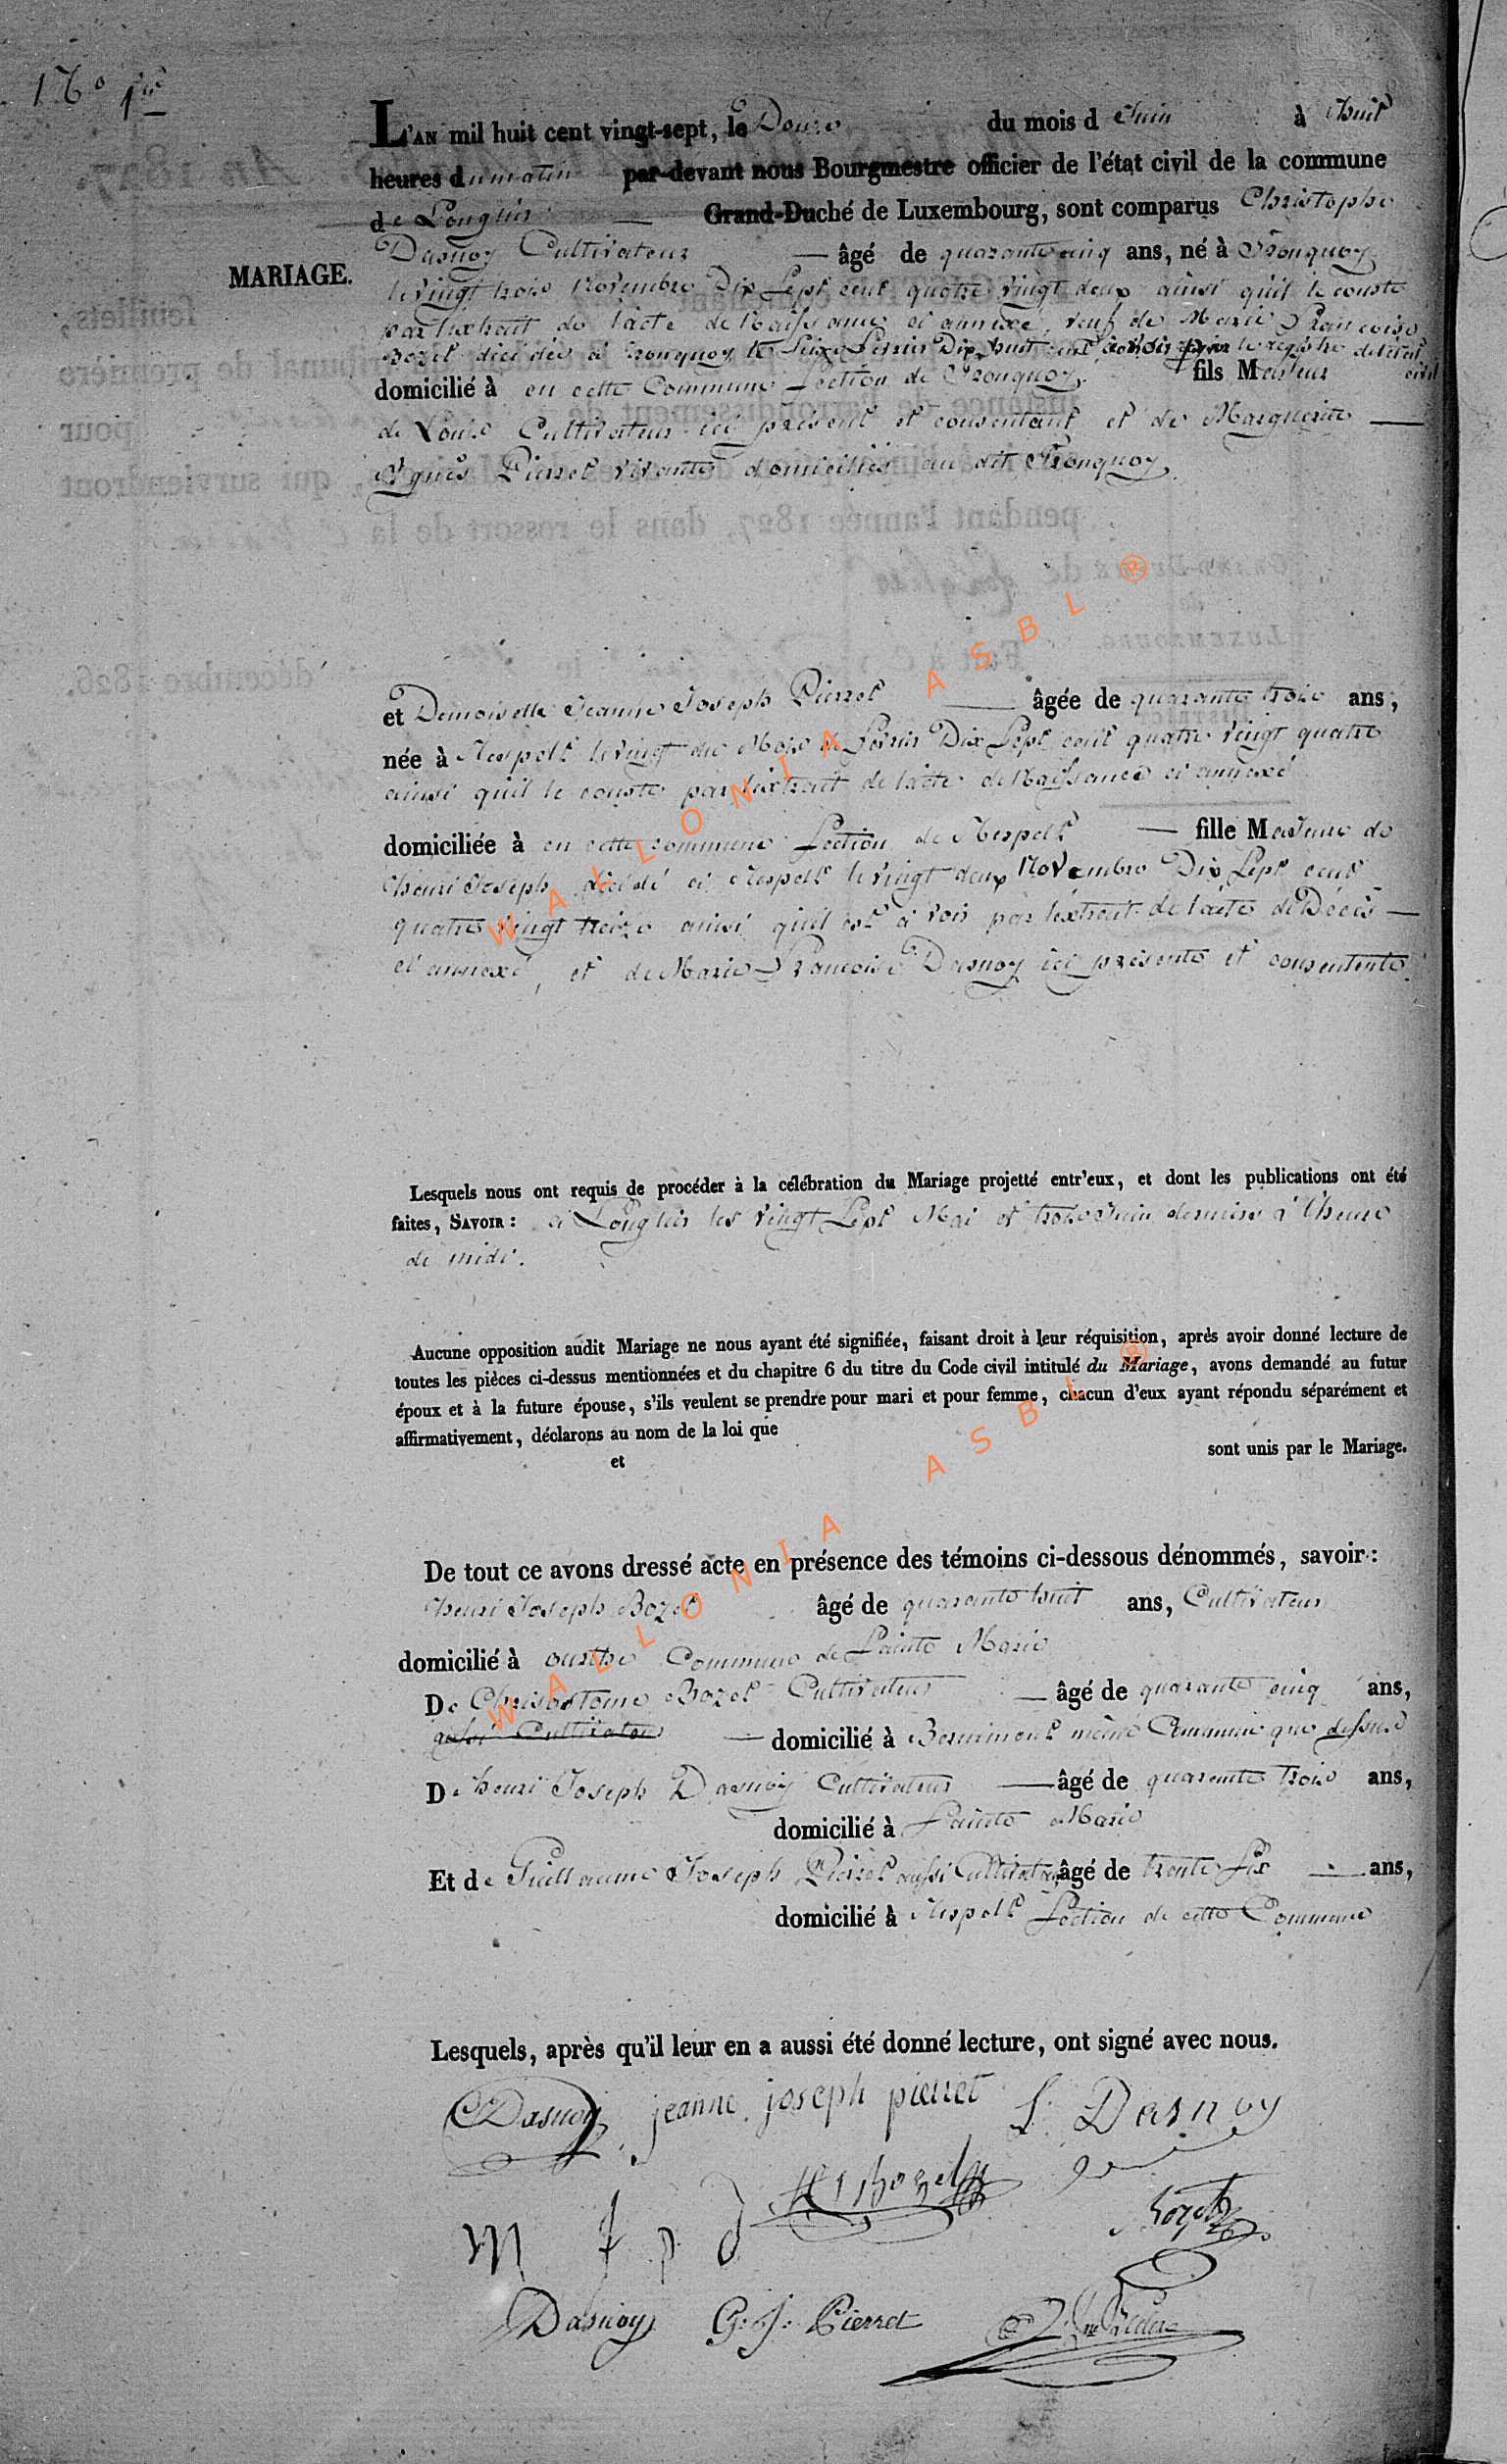 N° 1er
L'AN mil huit cent vingt-sept, le Douze du mois d Juin à huit
heures du matin par-devant nous Bourgmestre officier de l'état civil de la commune
de Longlier Grand-Duché de Luxembourg, sont comparus Christophe
MARIAGE.
Dasnoy Cultivateur âgé de quarante cinq ans, né à Tronquoy
le vingt trois Novembre Dix Sept cent quatre vingt deux ainsi qu'il le conste
par l'extrait de l'acte de Naissance ci annexé, veuf de Marie Françoise
Bozet décédée à Tronquoy le Seize Février Dix huit cent à voir par le registre de l'état civil
domicilié à en cette Commune Section de Tronquoy. fils Majeur
de Louis Cultivateur ici présent et consentant et de Marguerite
Agnès Pierret vivante domiciliés au dit Tronquoy.
et Demoiselle Jeanne Joseph Pierret âgée de quarante trois ans,
née à Respelt le vingt du Mois de Février Dix Sept cent quatre vingt quatre
ainsi qu'il le conste par l'extrait de l'acte de Naissance ci annexé
domiciliée à en cette commune Section de Respelt fille Majeure de
henri Joseph décédé à Respelt le vingt deux Novembre Dix Sept cent
quatre vingt treize ainsi qu'il est à voir par l'extrait de l'acte de Décès
ci annexé, et de Marie Françoise Dasnoy ici présente et consentente.
Lesquels nous ont requis de procéder à la célébration du Mariage projetté entr'eux, et dont les publications ont été
faites, SAVOIR : à Longlier les vingt Sept Mai et trois Juin derniers à l'heure
de midi.
Aucune opposition audit Mariage ne nous ayant été signifiée, faisant droit à leur réquisition, après avoir donné lecture de
toutes les pièces ci-dessus mentionnées et du chapitre 6 du titre du Code civil intitulé du Mariage, avons demandé au futur
époux et à la future épouse, s'ils veulent se prendre pour mari et pour femme, chacun d'eux ayant répondu séparément et
affirmativement, déclarons au nom de la loi que
et sont unis par le Mariage.
De tout ce avons dressé acte en présence des témoins ci-dessous dénommés, savoir :
henri Joseph Bozet âgé de quarante huit ans, Cultivateur
domicilié à ourthe Commune de Sainte Marie
De Chrisostome Bozet Cultivateur âgé de quarante cinq ans,
aussi Cultivateur domicilié à Bernimont même Commune que dessus
De henri Joseph Dasnoy Cultivateur âgé de quarante trois ans,
domicilié à Sainte Marie
Et de Guillaume Joseph Pierret aussi Cultivateur âgé de trente Six ans,
domicilié à Respelt Section de cette Commune
Lesquels, après qu'il leur en a aussi été donné lecture, ont signé avec nous.
C Dasnoy jeanne joseph pierret L. Dasnoy
H J Bozet
m f p d Bozet
Dasnoy G. J. Pierret
WALLONIA ASBL ®
WALLONIA ASBL ®